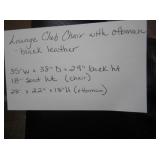 Lounge Club Chair with ottoman
- black leather
35" W x 38" D x 29" back ht
18" seat ht (chair)
28" x 22" x 18" H (ottoman)